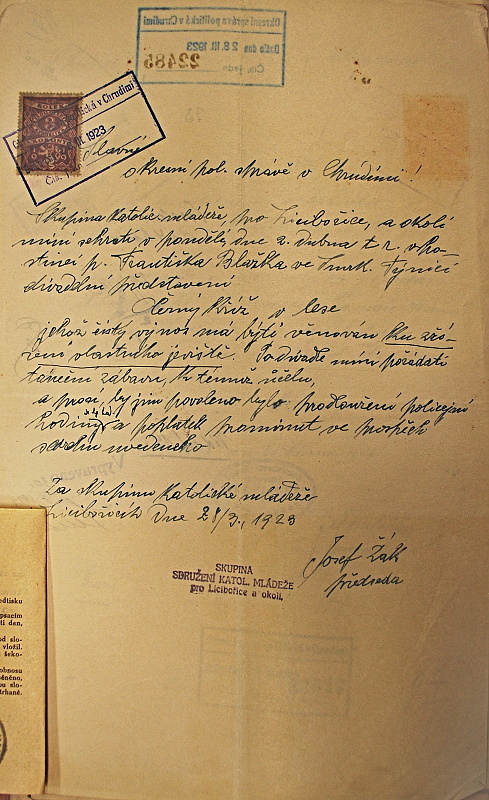 Okresní správa politická v Chrudimi
Došlo dne 28.III.1923
Čís. jedn. 22485
KOLEK
ická v Chrudimi
III. 1923
Čís.
Slavné
okresní pol. správě v Chrudimi!
Skupina katolic. mládeže, pro Licibořice, a okolí
míní sehráti, v pondělí, dne 2. dubna t. r. v ho-
stinci p. Františka Blažka ve Smrk. Týnici
divadelní představení
Černý Kříž v lese
jehož čistý výnos má býti věnován ku zří-
zení vlastního jeviště. Po divadle míní pořádati
táneční zábavu, k témuž účelu,
a prosí, by jim povoleno bylo prodloužení policejní
hodiny a poplatek prominut ve prospěch
uvedeného
Za skupinu katolické mládeže
Licibořicích Dne 28/3., 1923
Josef Žák
předseda
SKUPINA
SDRUŽENÍ KATOL. MLÁDEŽE
pro Licibořice a okolí.
edtisku
psacím
tí den,
od slo-
vložil.
šeko-
obnosu
něno,
ou slo-
trhané.